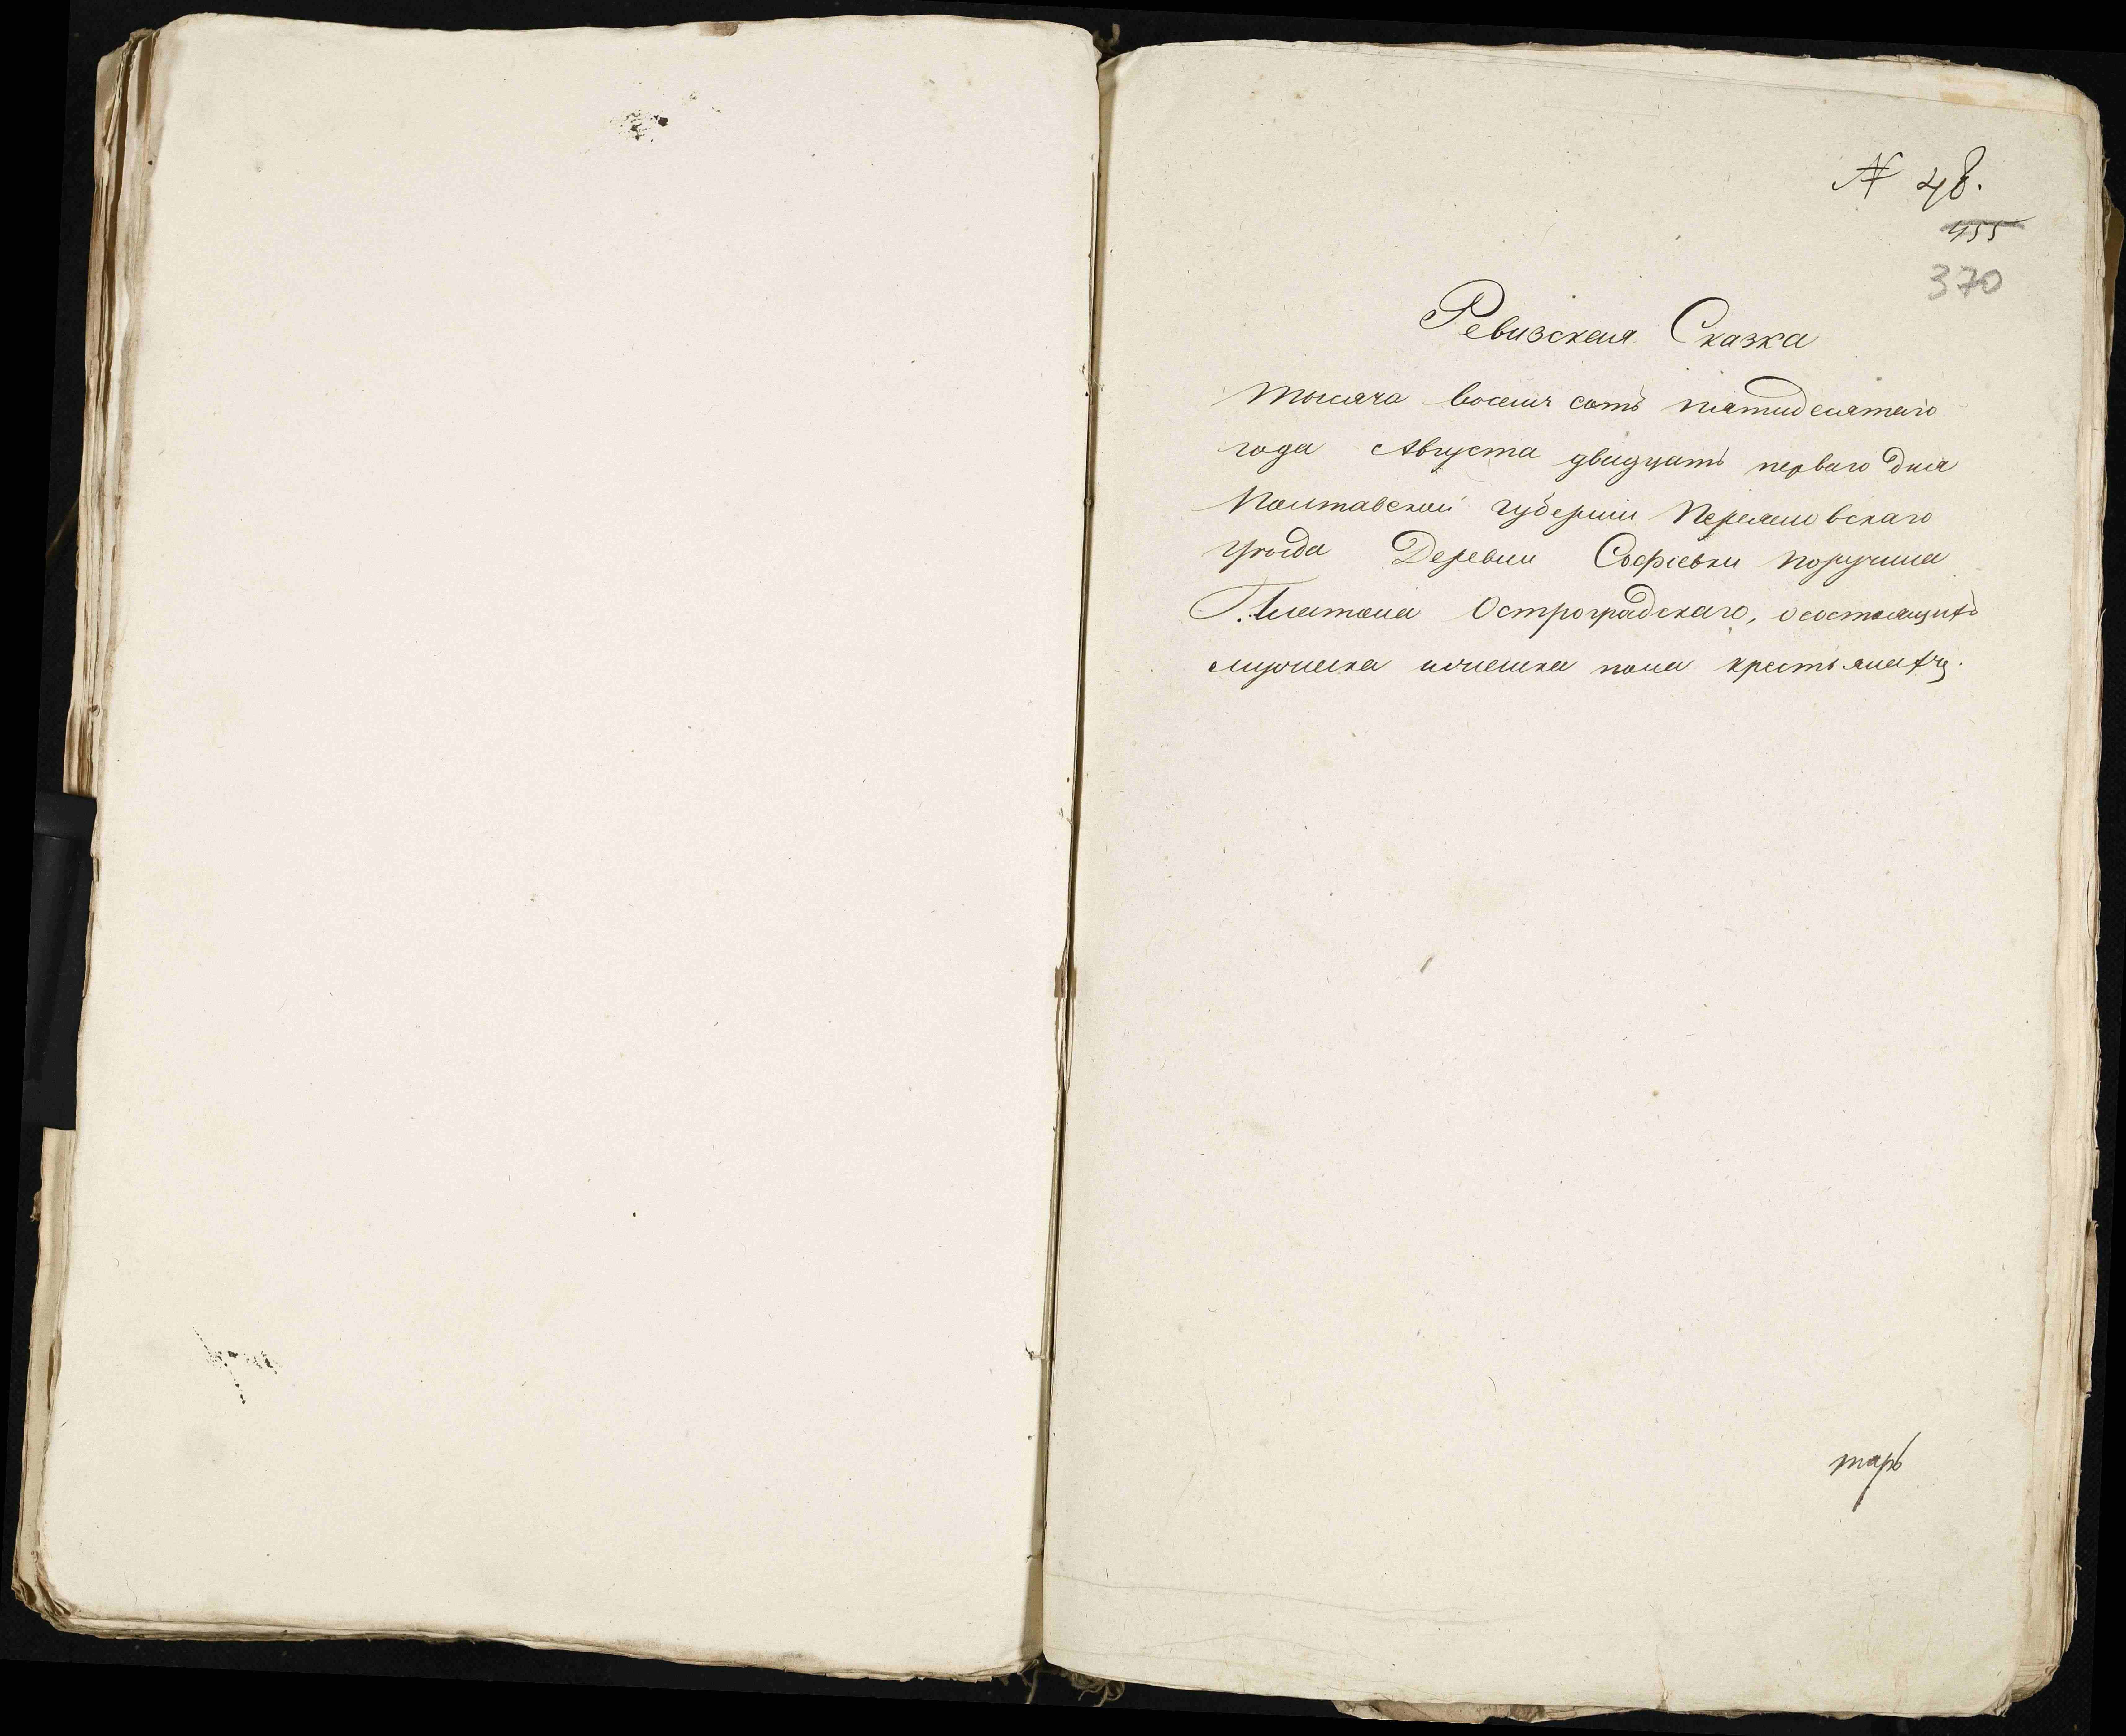 № 48.
455
370
Ревизская Сказка
тысяча восемь сотъ пятидесятаго
года Августа двадцать перваго дня
Полтавской губерніи Переяславскаго
уѣзда Деревни Софіевки поручика
Платона Остроградскаго, осостоящихъ
мужеска иженска пола крестьянахъ.